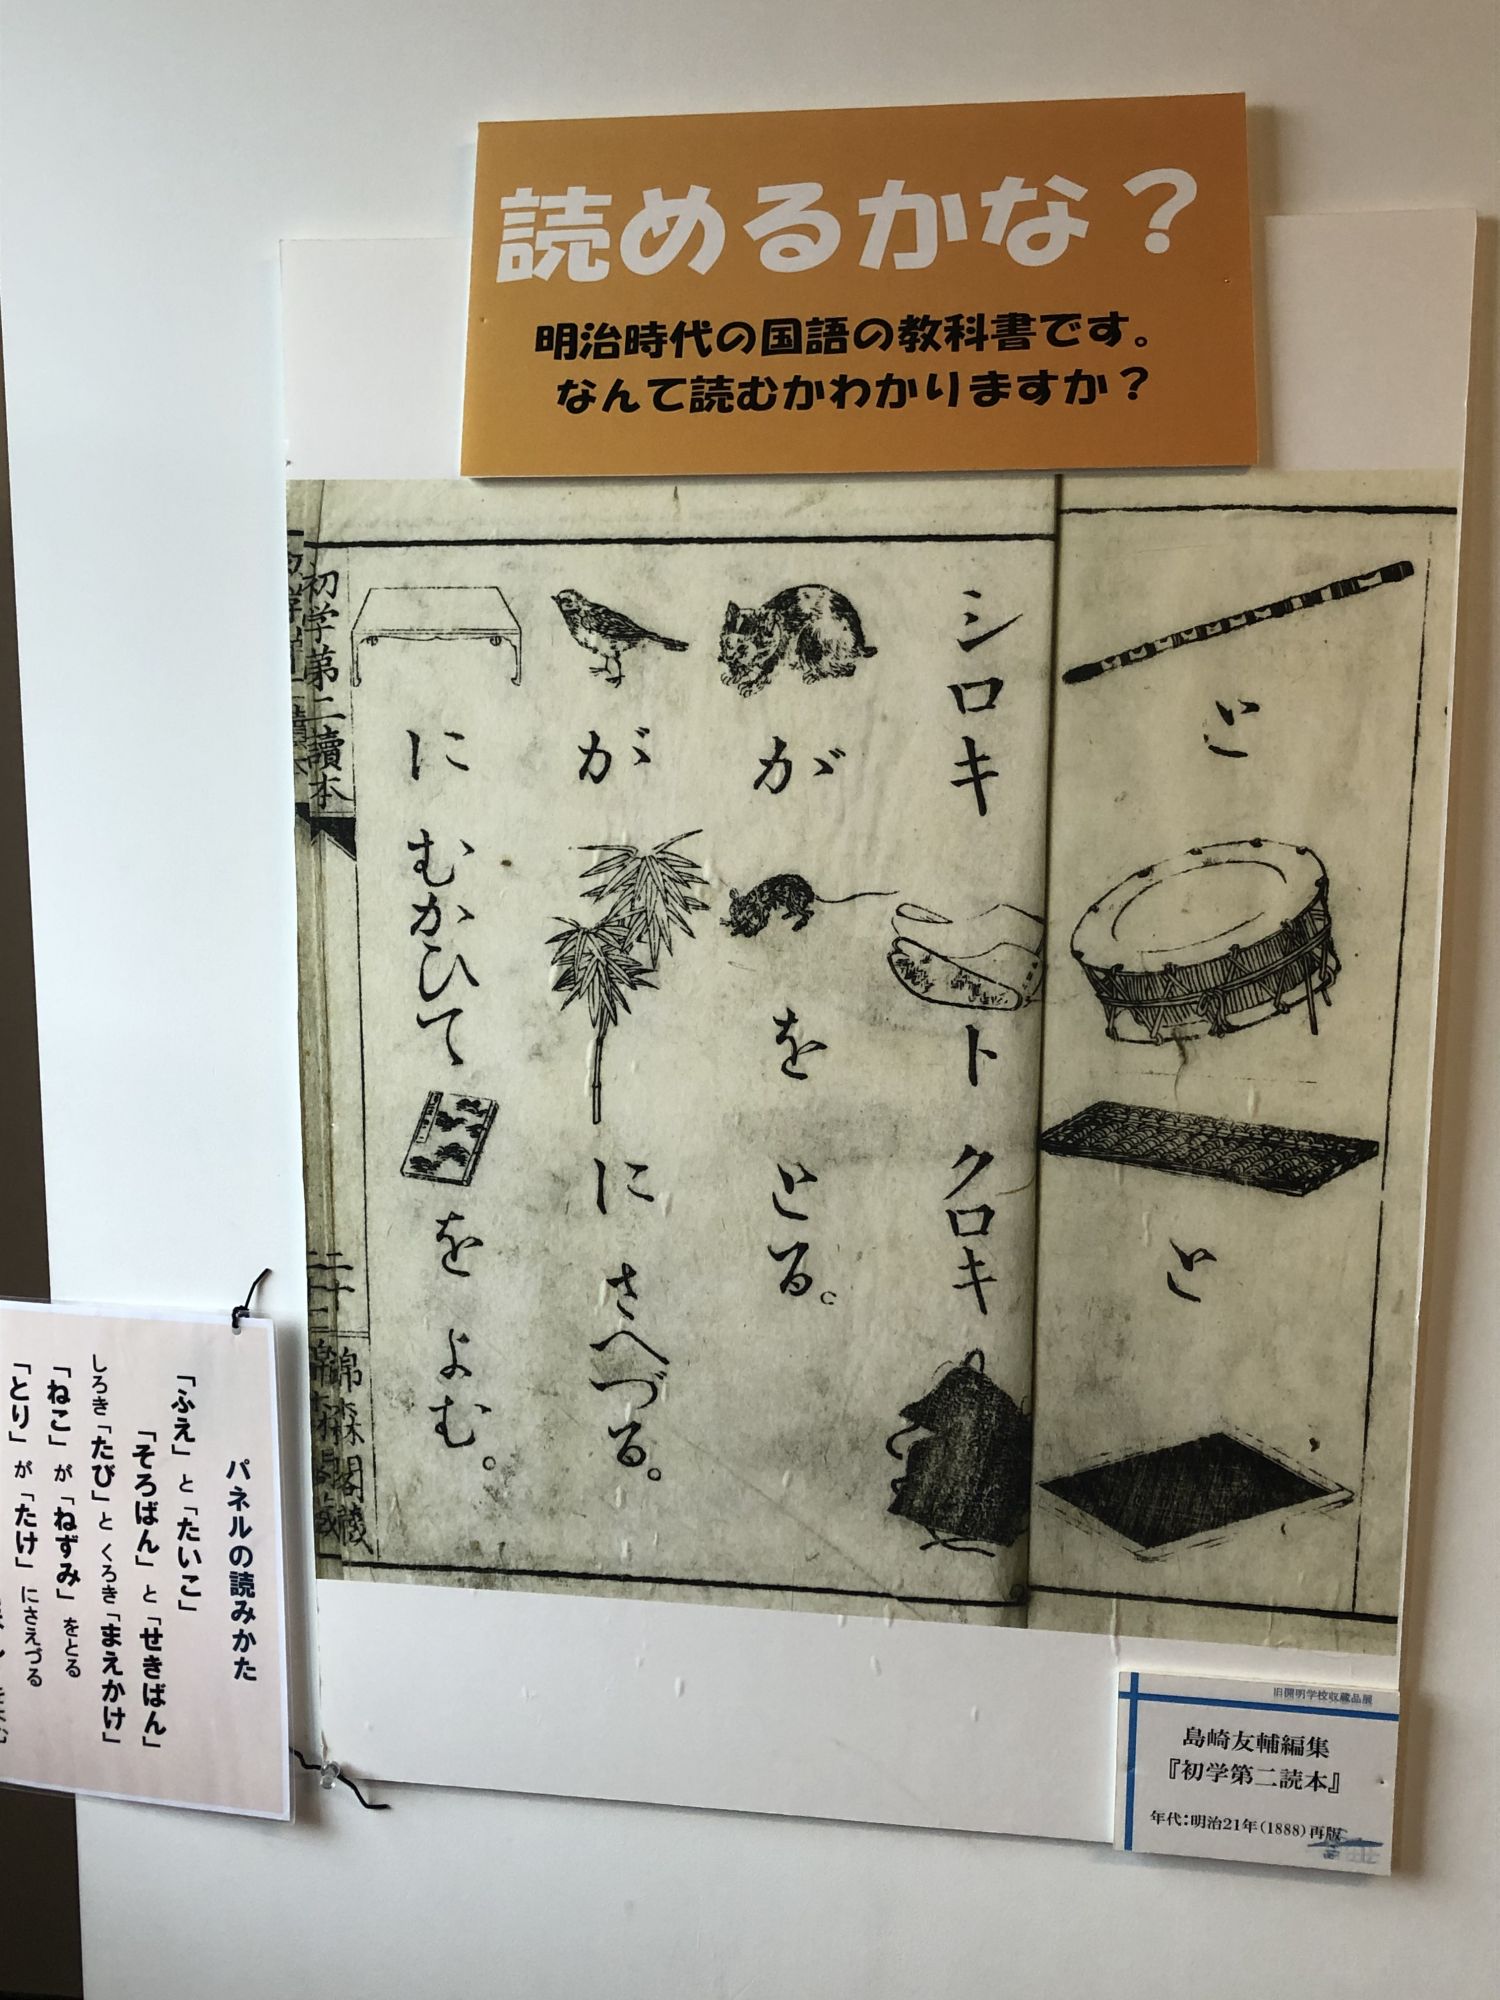 読めるかな？
明治時代の国語の教科書です。
なんて読むかわかりますか？
と
と
シロキ ト クロキ
が を とる。
が に さへづる。
に むかひて を よむ。
初学第二讀本
二十
錦森閣藏
パネルの読みかた
「ふえ」と「たいこ」
「そろばん」と「せきばん」
しろき「たび」と くろき「まえかけ」
「ねこ」が「ねずみ」をとる
「とり」が「たけ」にさえづる
旧開明学校収蔵品展
島崎友輔編集
『初学第二読本』
年代：明治21年（1888）再版